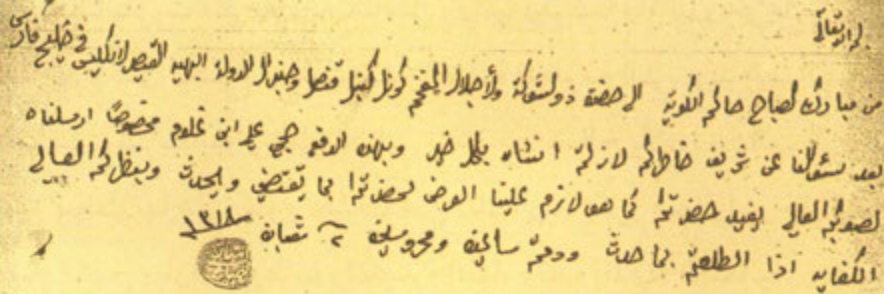 من مبارك الصباح حاكم الكويت الى حضرة ذو الشوكة والأجلال المفخم كونل كنبل قنصل وجنرال الدولة البهيه القيصريه الانكليس في خليج فارس
بعد سئوالنا عن شريف خاطركم لازلتم انشاء بكل خير وبهذه الدفعه حجي علي ابن غلوم مخصوصًا ارسلناه
لصوبكم العالي يفيد حضرتكم كما هو لازم علينا العرض لحضرتكم بما يقتضي ويحدث وبنظركم العالي
الكفايه اذا اطلعتم بما حدث ودمتم سالمين ومحروسين ٢ شعبان ١٣١٨